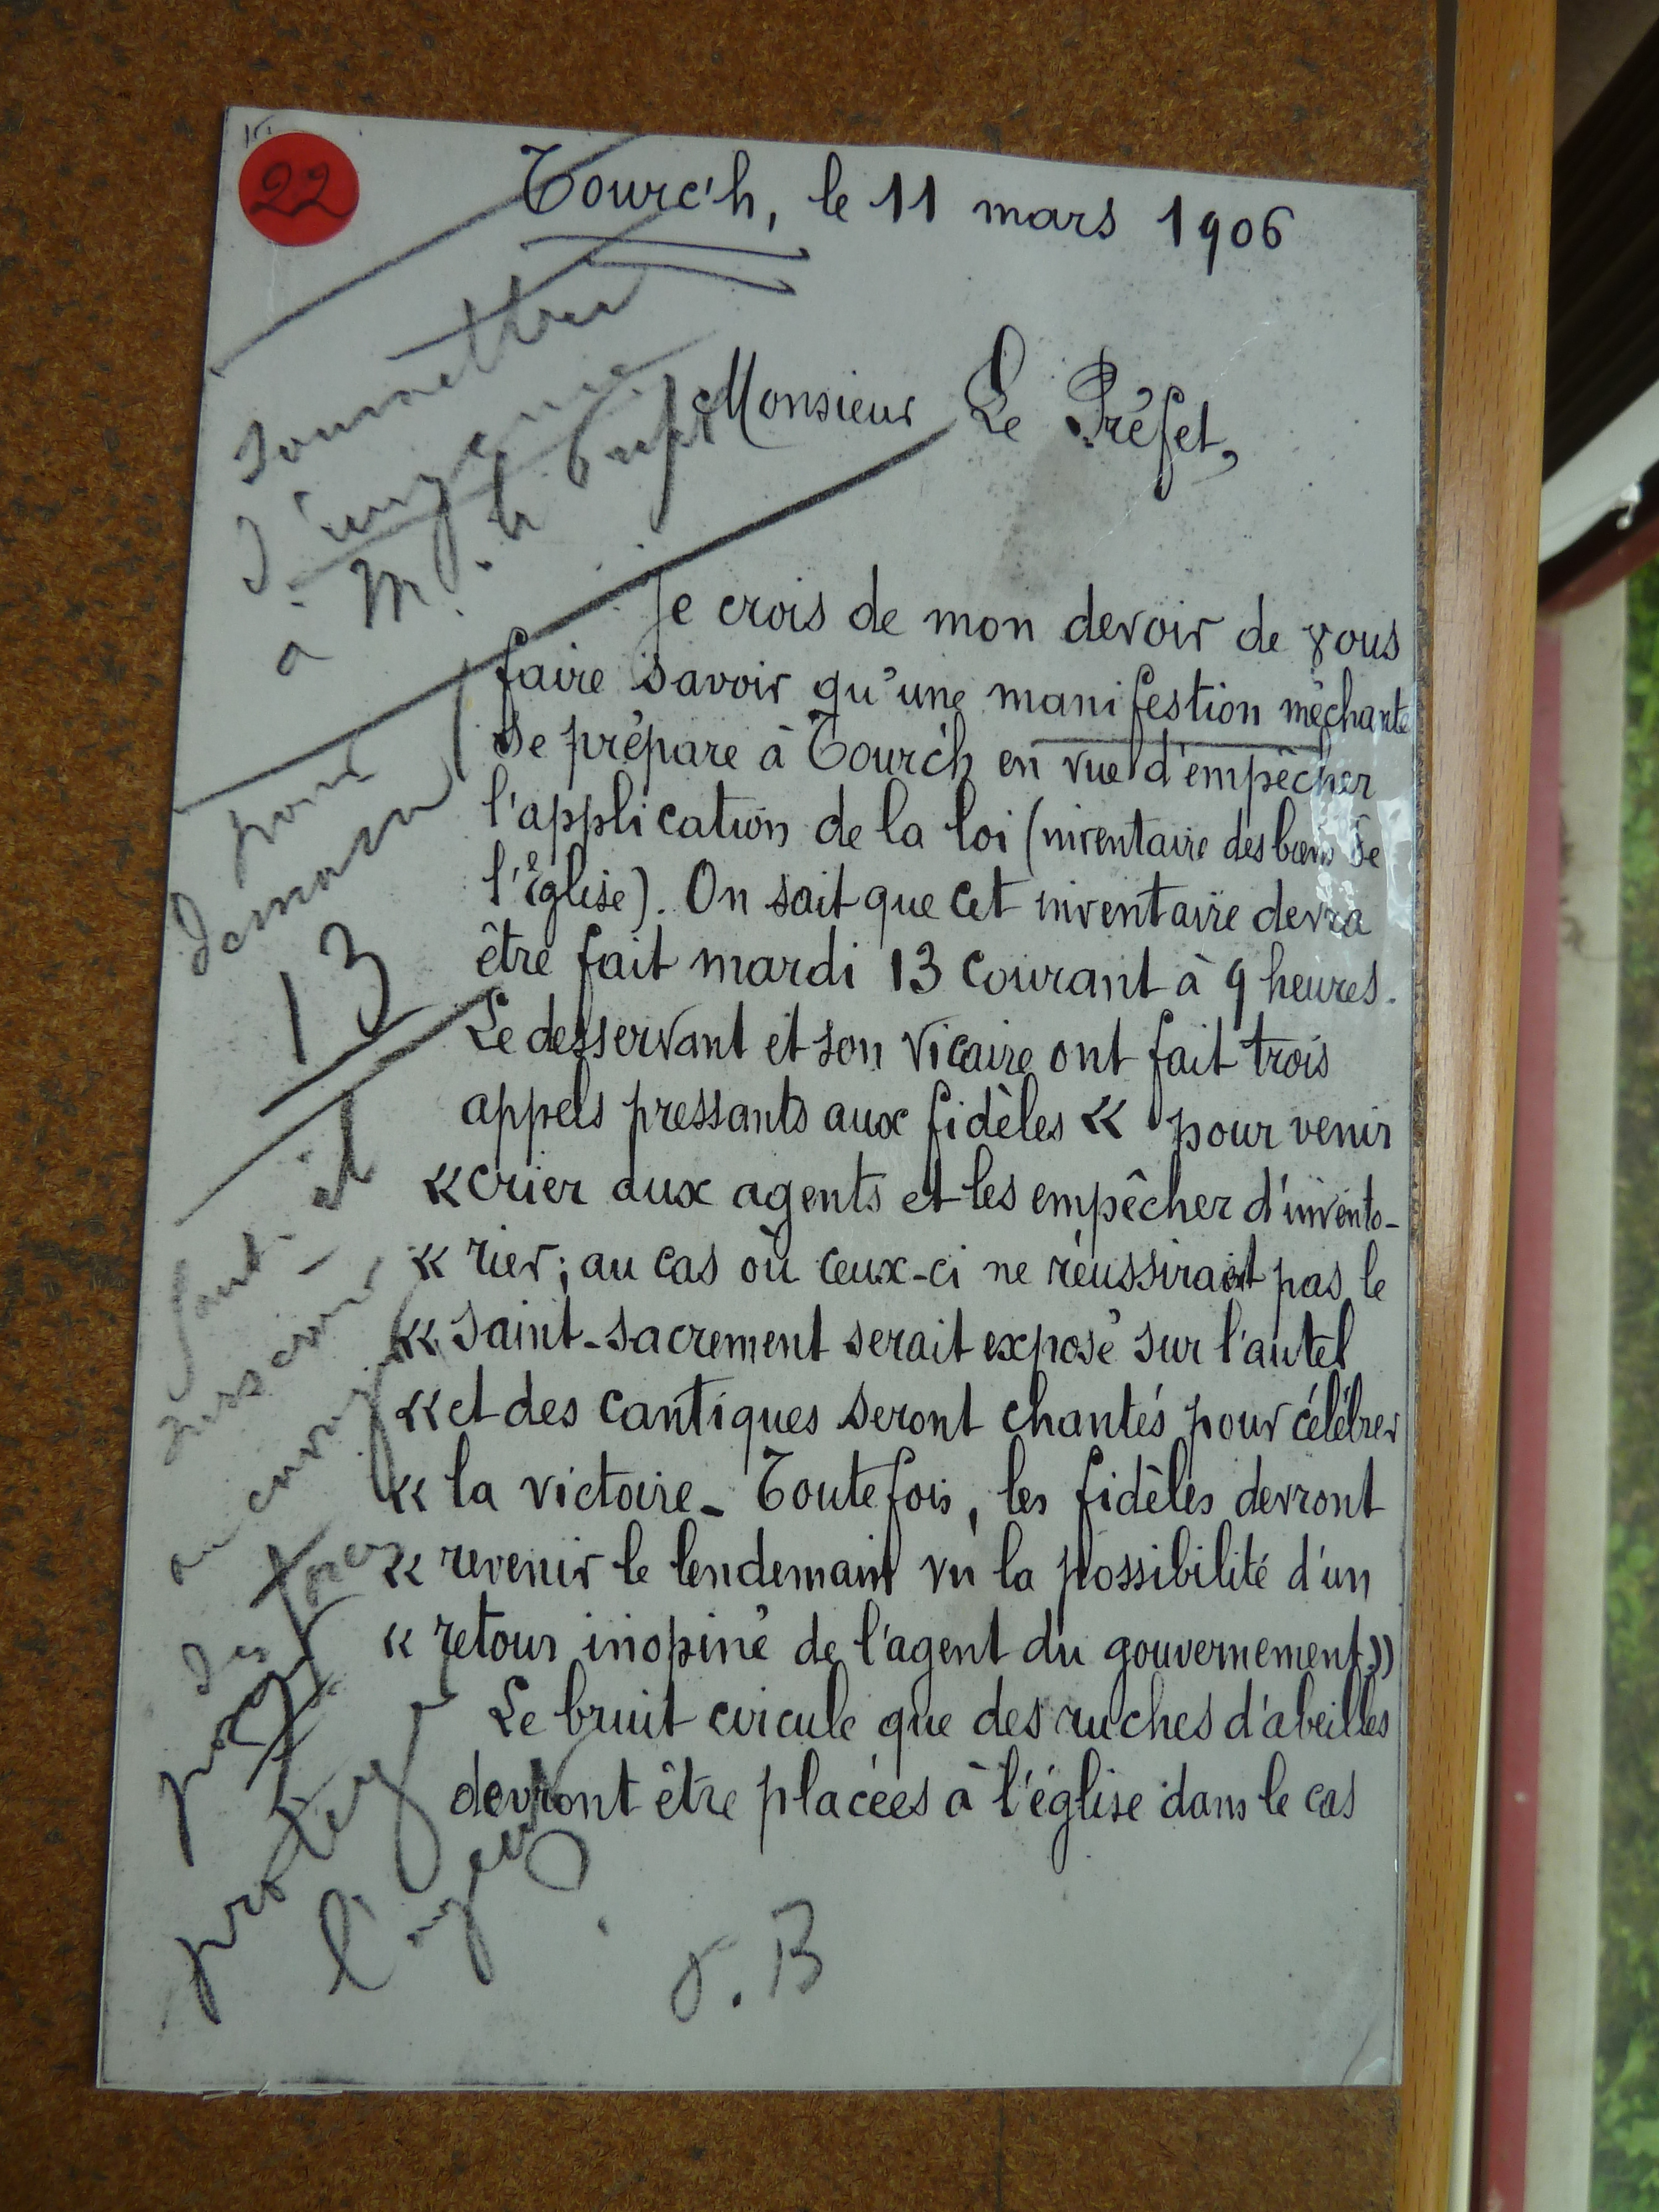 22
Tourc'h, le 11 mars 1906
Monsieur Le Préfet,
Je crois de mon devoir de vous
faire savoir qu'une manifestion méchante
se prépare à Tourc'h en vue d'empêcher
l'application de la loi (inventaire des biens de
l'Eglise). On sait que cet inventaire devra
être fait mardi 13 courant à 9 heures.
Le desservant et son vicaire ont fait trois
appels pressants aux fidèles « pour venir
« crier aux agents et les empêcher d'invento-
« rier; au cas où ceux-ci ne réussiraient pas le
« saint-sacrement serait exposé sur l'autel
« et des cantiques seront chantés pour célébrer
« la victoire_ Toutefois, les fidèles devront
« revenir le lendemain vu la possibilité d'un
« retour inopiné de l'agent du gouvernement.»
Le bruit circule que des ruches d'abeilles
devront être placées à l'église dans le cas
Soumettre
d'urgence
à M. le Préfet
pour
demain
13
faut-il
des forces
pour
protéger
l'agent
. B